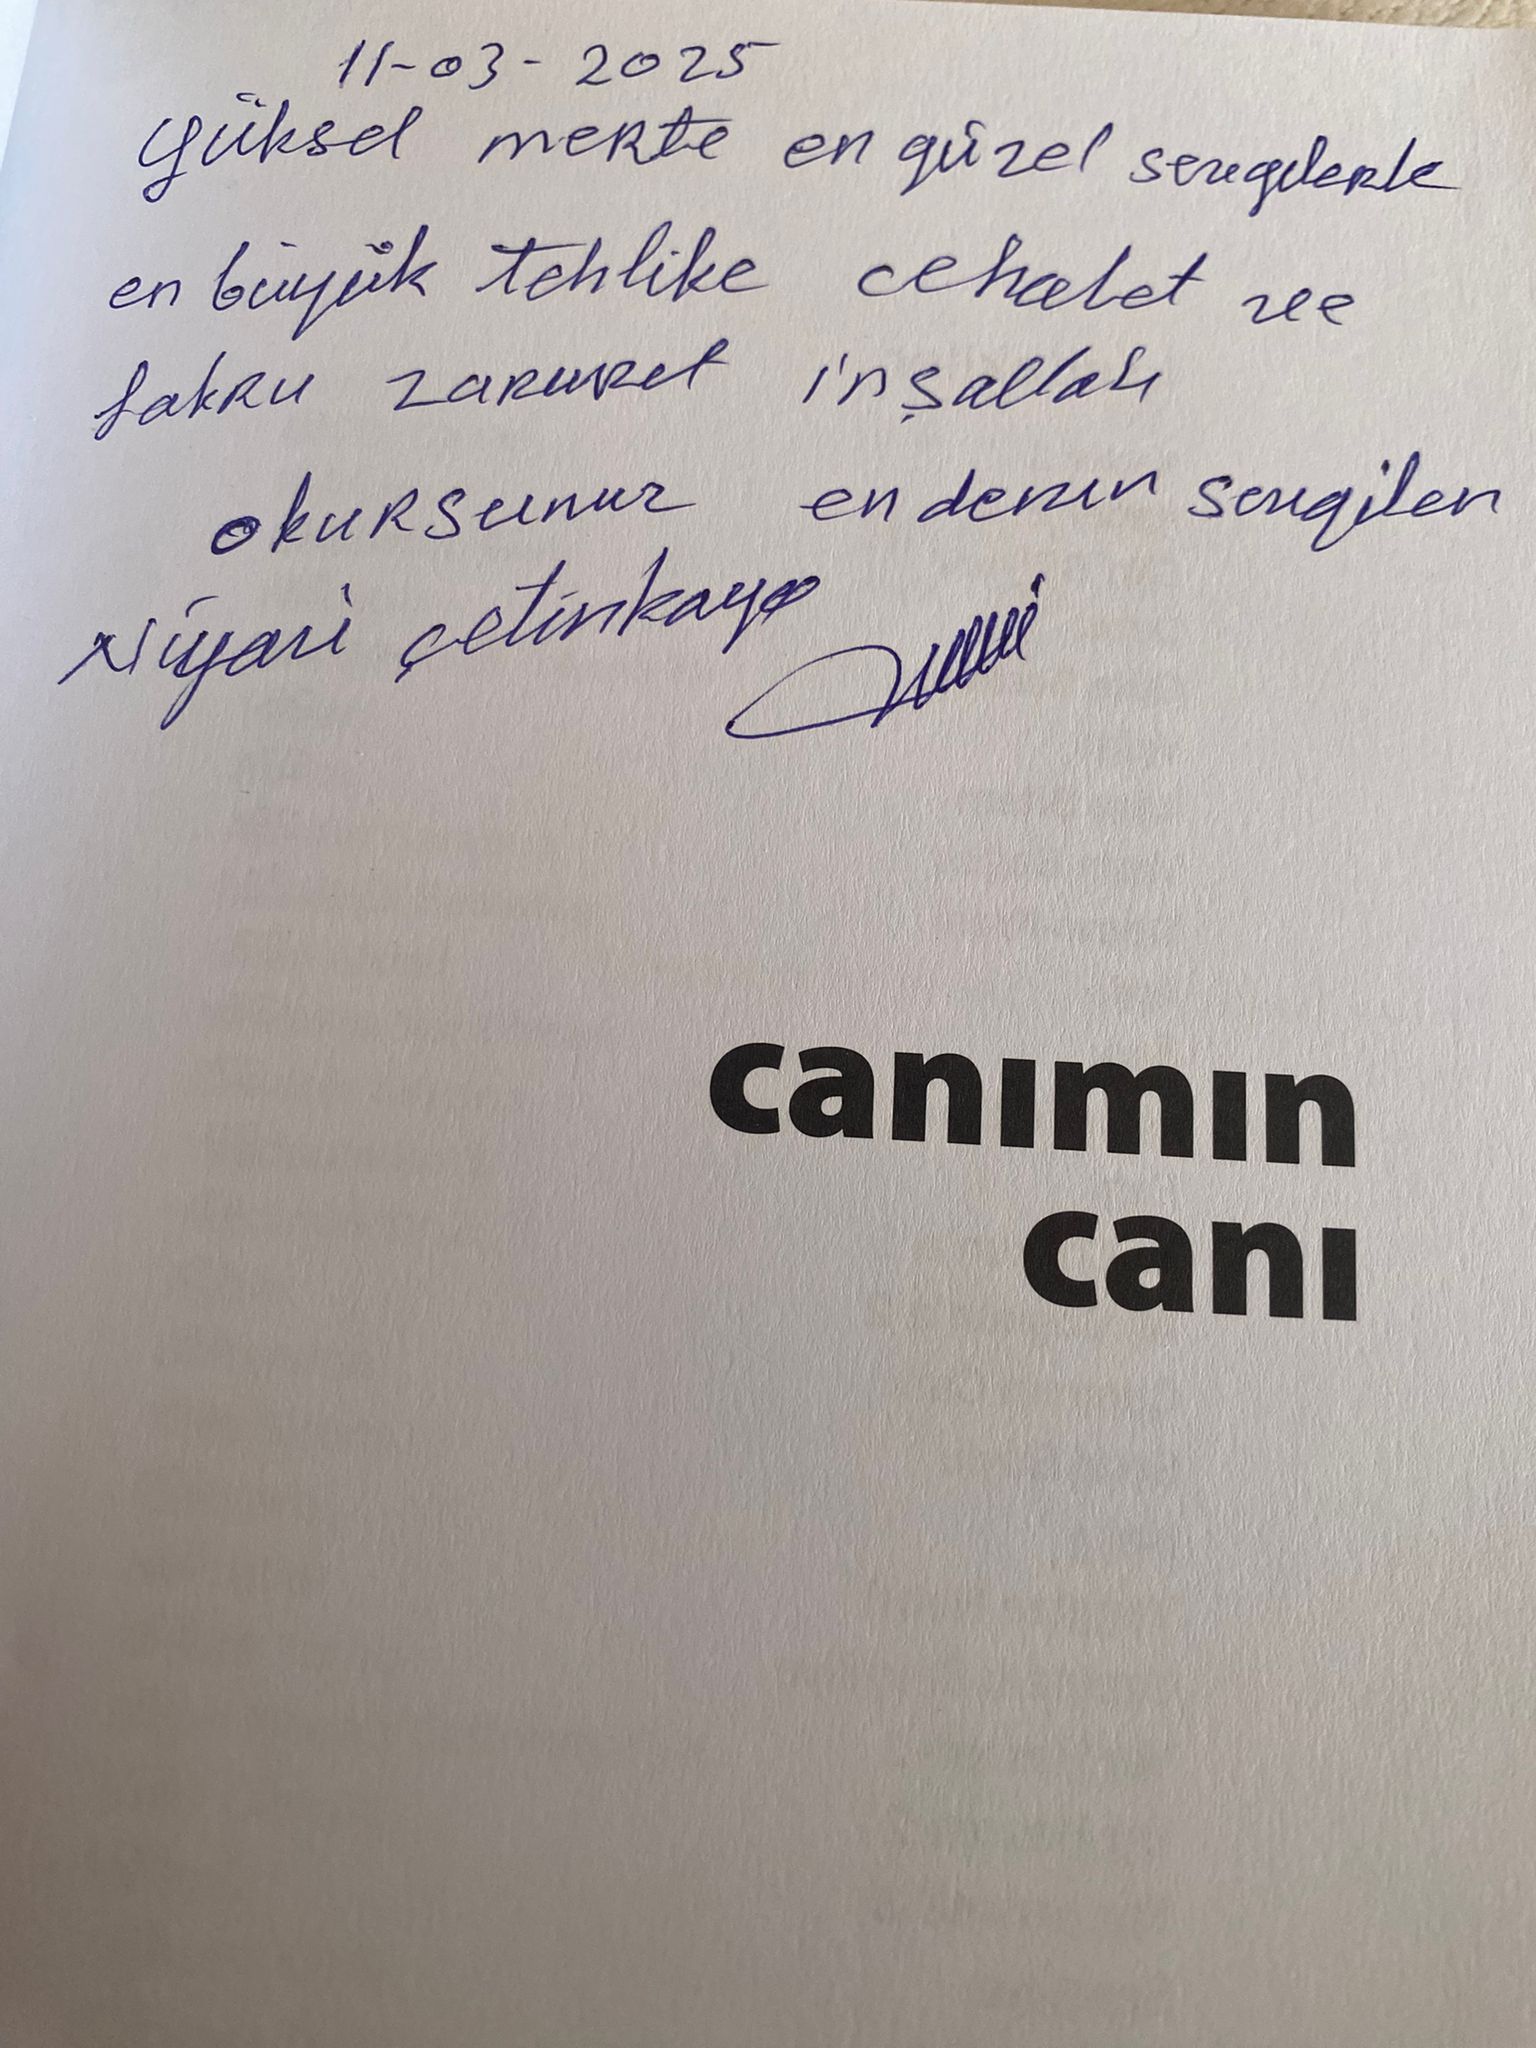 11-03-2025
Yüksel merte en güzel sevgilerle
en büyük tehlike cehalet ve
fakru zaruret inşallah
okursunuz en derin sevgiler
Niyazi çetinkaya
canımın
canı